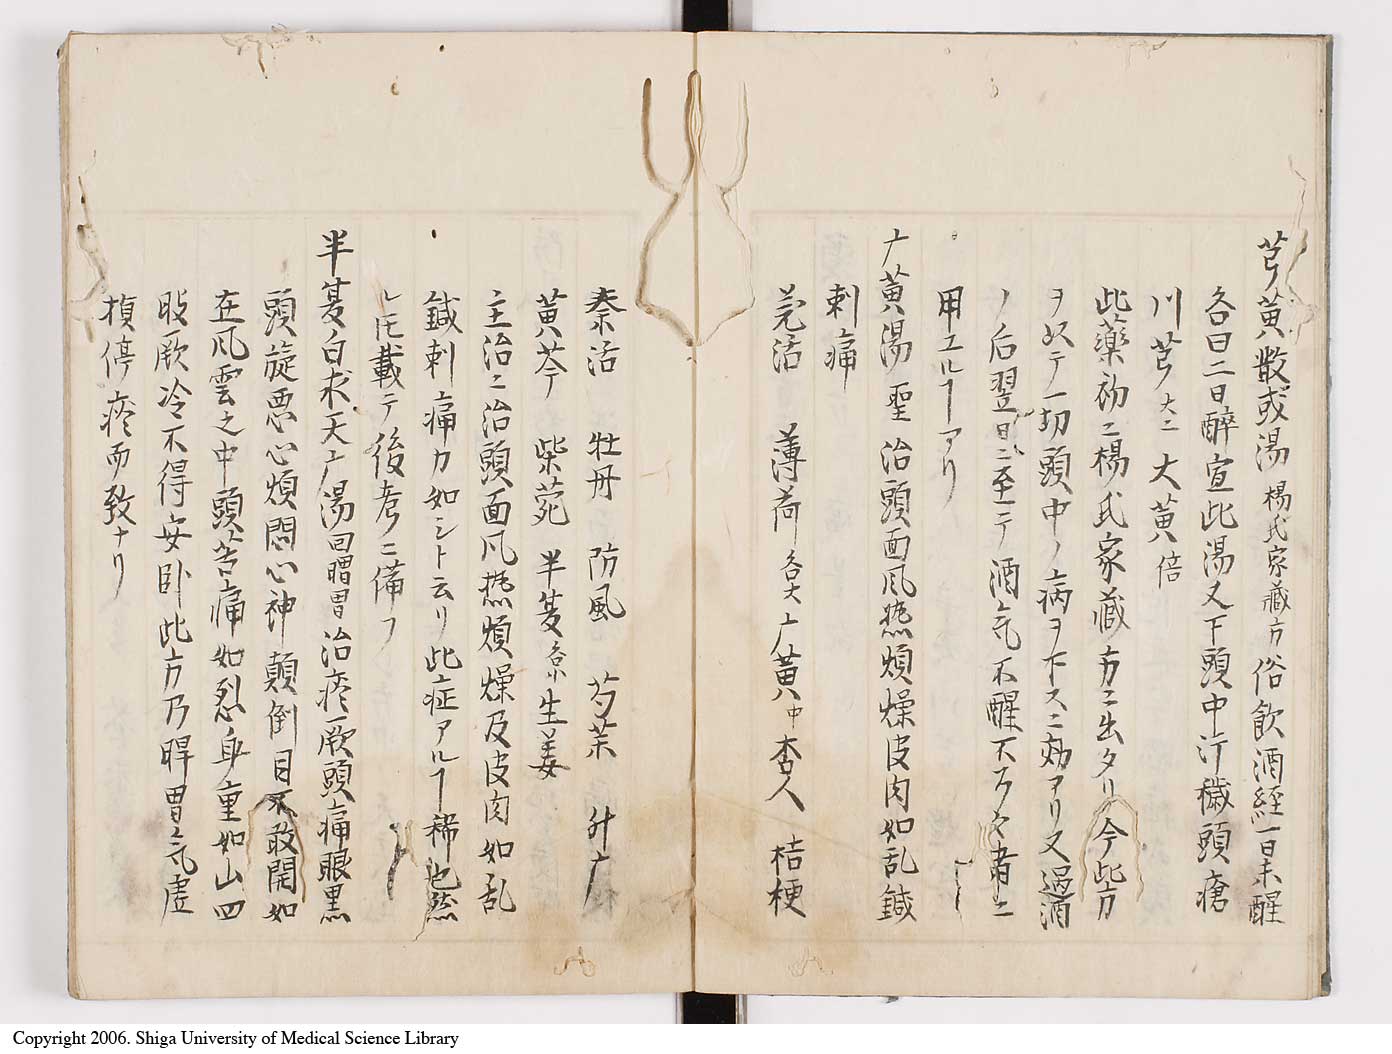 芎黄散或湯 楊氏家蔵方 俗飲酒経一日未醒
各曰二日醉宣此湯又下頭中汗穢頭瘡
川芎大ニ 大黄倍
此藥初ニ楊氏家蔵方ニ出タリ今此方
ヲ以テ一切頭中ノ病ヲ下スニ効アリ又過酒
ノ后翌日ニ至テ酒気不醒
用ユルヿアリ
广黄湯 聖 治頭面風熱煩燥皮肉如乱鍼
刺痛
羌活 薄荷各大 广黄中 杏人 桔梗
秦活 牡丹 防風 芍茱 升广
黄芩 柴苑 半夏各小 生姜
主治ニ治頭面風熱煩燥及皮肉如乱
鍼刺痛カ如シト云リ此症アルヿ稀也然
レ𪜈載テ後考ニ備フ
半夏白朮天广湯 治痰厥頭痛眼黒
頭旋悪心煩悶心神顛倒目不敢開如
在風雲之中頭苦痛如烈身重如山四
肢厥冷不得安卧此方乃胃气虚
損停痰而致ナリ
Copyright 2006. Shiga University of Medical Science Library